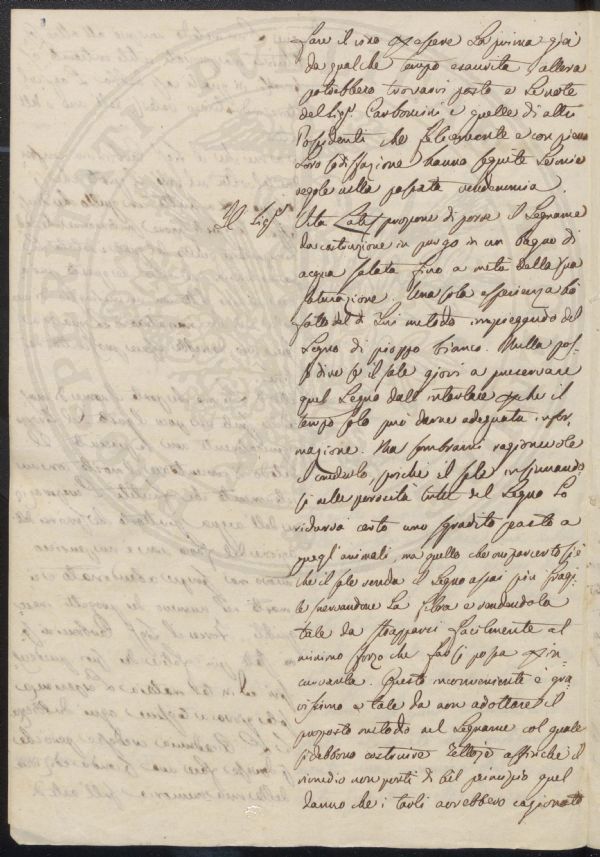 fare il vino per essere la prima già
da qualche tempo esaurita, allora
potrebbero trovarvi posto e le note
del Sig.r Carboncini e quelle di altri
Possidenti che felicemente e con piena
loro sodisfazione hanno seguite le mie
regole nella passata vendemmia.
Il Sig.r
Vita propone di porre il Legname
da costruzione in purgo in un bagno di
acqua salata fino a metà della sua
saturazione. Una sola esperienza ho
fatto del di Lui metodo impiegando del
Legno di pioppo bianco. Nulla pos-
so dire se il sale giovi a preservare
quel Legno dall' intarlare perchè il
tempo solo può darne adeguata infor-
mazione. Ma sembrami ragionevole
il crederlo, poichè il sale insinuando
si nelle porosità tutte del Legno lo
ridurrà certo uno sgradito pasto a
quegli animali, ma quello che mi par certo si è
che il sale renda il Legno assai più fragi-
le snervandone la fibra e rendendola
tale da strapparsi facilmente al
minimo sforzo che far si possa per in-
curvarla. Questo inconveniente è gra-
vissimo e tale da non adottare il
proposto metodo nel Legname col quale
si debbono costruire Tettoje affinchè il
rimedio non porti di bel principio quel
danno che i tarli avrebbero cagionato